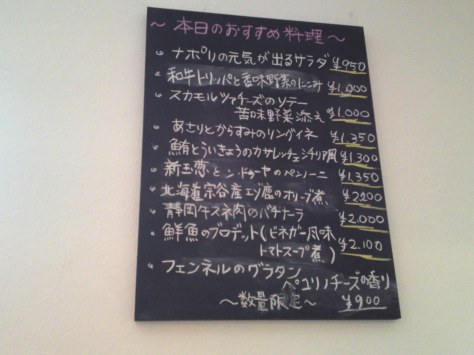 ～本日のおすすめ料理～
ナポリの元気が出るサラダ ¥950
和牛トリッパと香味野菜の煮込み ¥1,000
スカモルツァチーズのソテー
苦味野菜添え ¥1,000
あさりとからすみのリングイネ ¥1,350
鮪とういきょうのカサレッチェ シチリア風 ¥1,300
新玉葱とンドゥーヤのペンノーニ ¥1,350
北海道宗谷産エゾ鹿のオリーブ煮 ¥2200
静岡牛スネ肉のペポーゾ ¥2,000
鮮魚のブロデット(ビネガー風味
トマトスープ煮) ¥2,100
フェンネルのグラタン
ペコリーノチーズの香り
～数量限定～ ¥900